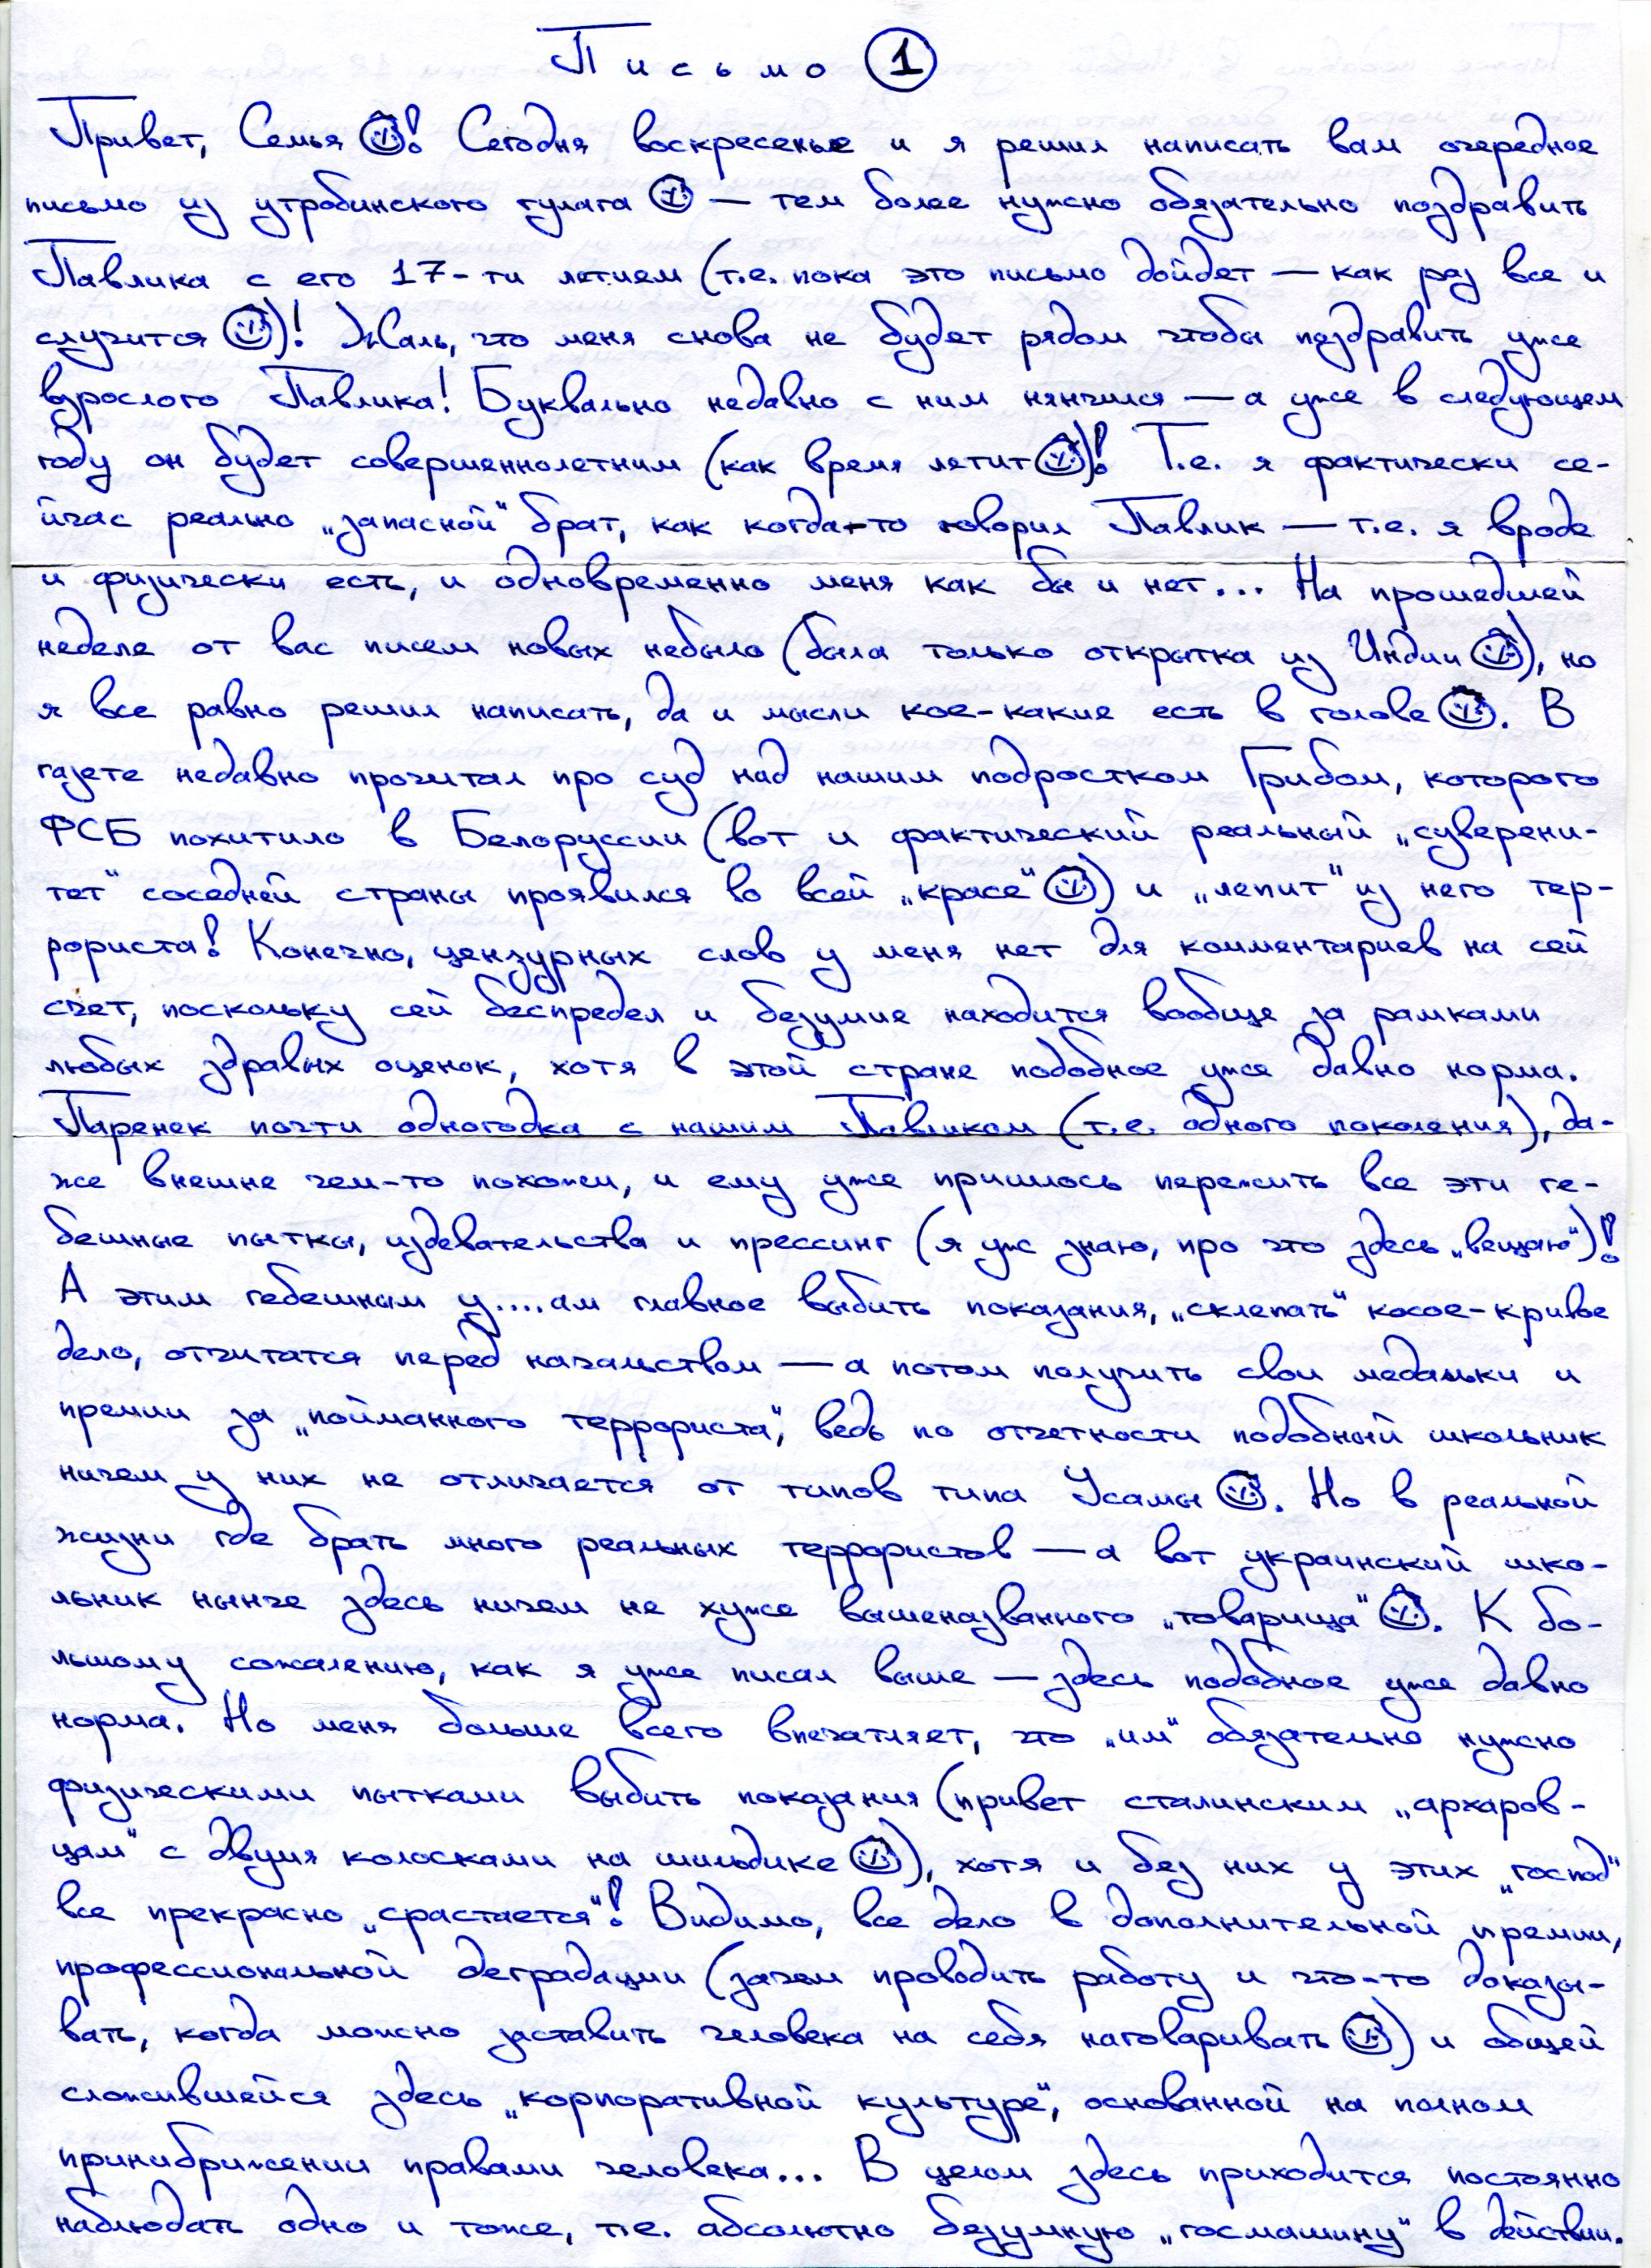 Письмо 1
Привет, Семья ☺! Сегодня воскресенье и я решил написать вам очередное
письмо из утробинского гулага ☺ — тем более нужно обязательно поздравить
Павлика с его 17-ти летием (т.е. пока это письмо дойдет — как раз все и
случится ☺)! Жаль, что меня снова не будет рядом чтобы поздравить уже
взрослого Павлика! Буквально недавно с ним нянчился — а уже в следующем
году он будет совершеннолетним (как время летит ☺)! Т.е. я фактически се-
йчас реально „запасной“ брат, как когда-то говорил Павлик — т.е. я вроде
и физически есть, и одновременно меня как бы и нет... На прошедшей
неделе от вас писем новых небыло (была только открытка из Индии ☺), но
я все равно решил написать, да и мысли кое-какие есть в голове ☺. В
газете недавно прочитал про суд над нашим подростком Грибом, которого
ФСБ похитило в Белоруссии (вот и фактический реальный „суверени-
тет“ соседней страны проявился во всей „красе“ ☺) и „лепит“ из него тер-
рориста! Конечно, цензурных слов у меня нет для комментариев на сей
счет, поскольку сей беспредел и безумие находится вообще за рамками
любых здравых оценок, хотя в этой стране подобное уже давно норма.
Паренек почти одногодка с нашим Павликом (т.е. одного поколения), да-
же внешне чем-то похожи, и ему уже пришлось пережить все эти ге-
бешные пытки, издевательства и прессинг (я уж знаю, про что здесь „вещаю“)!
А этим гебешным у....ам главное выбить показания, „склепать“ косое-кривое
дело, отчитатся перед начальством — а потом получить свои медальки и
премии за „пойманного террориста“, ведь по отчетности подобный школьник
ничем у них не отличается от типов типа Усамы ☺. Но в реальной
жизни где брать много реальных террористов — а вот украинский шко-
льник нынче здесь ничем не хуже вышеназванного „товарища“ ☺. К бо-
льшому сожалению, как я уже писал выше — здесь подобное уже давно
норма. Но меня больше всего впечатляет, что „им“ обязательно нужно
физическими пытками выбить показания (привет сталинским „архаров-
цам“ с двумя колосками на шильдике ☺), хотя и без них у этих „господ“
все прекрасно „срастается“! Видимо, все дело в дополнительной премии,
профессиональной деградации (зачем проводить работу и что-то доказы-
вать, когда можно заставить человека на себя наговаривать ☺) и общей
сложившейся здесь „корпоративной культуре“, основанной на полном
принибрижении правами человека... В целом здесь приходится постоянно
наблюдать одно и тоже, т.е. абсолютно безумную „госмашину“ в действии.